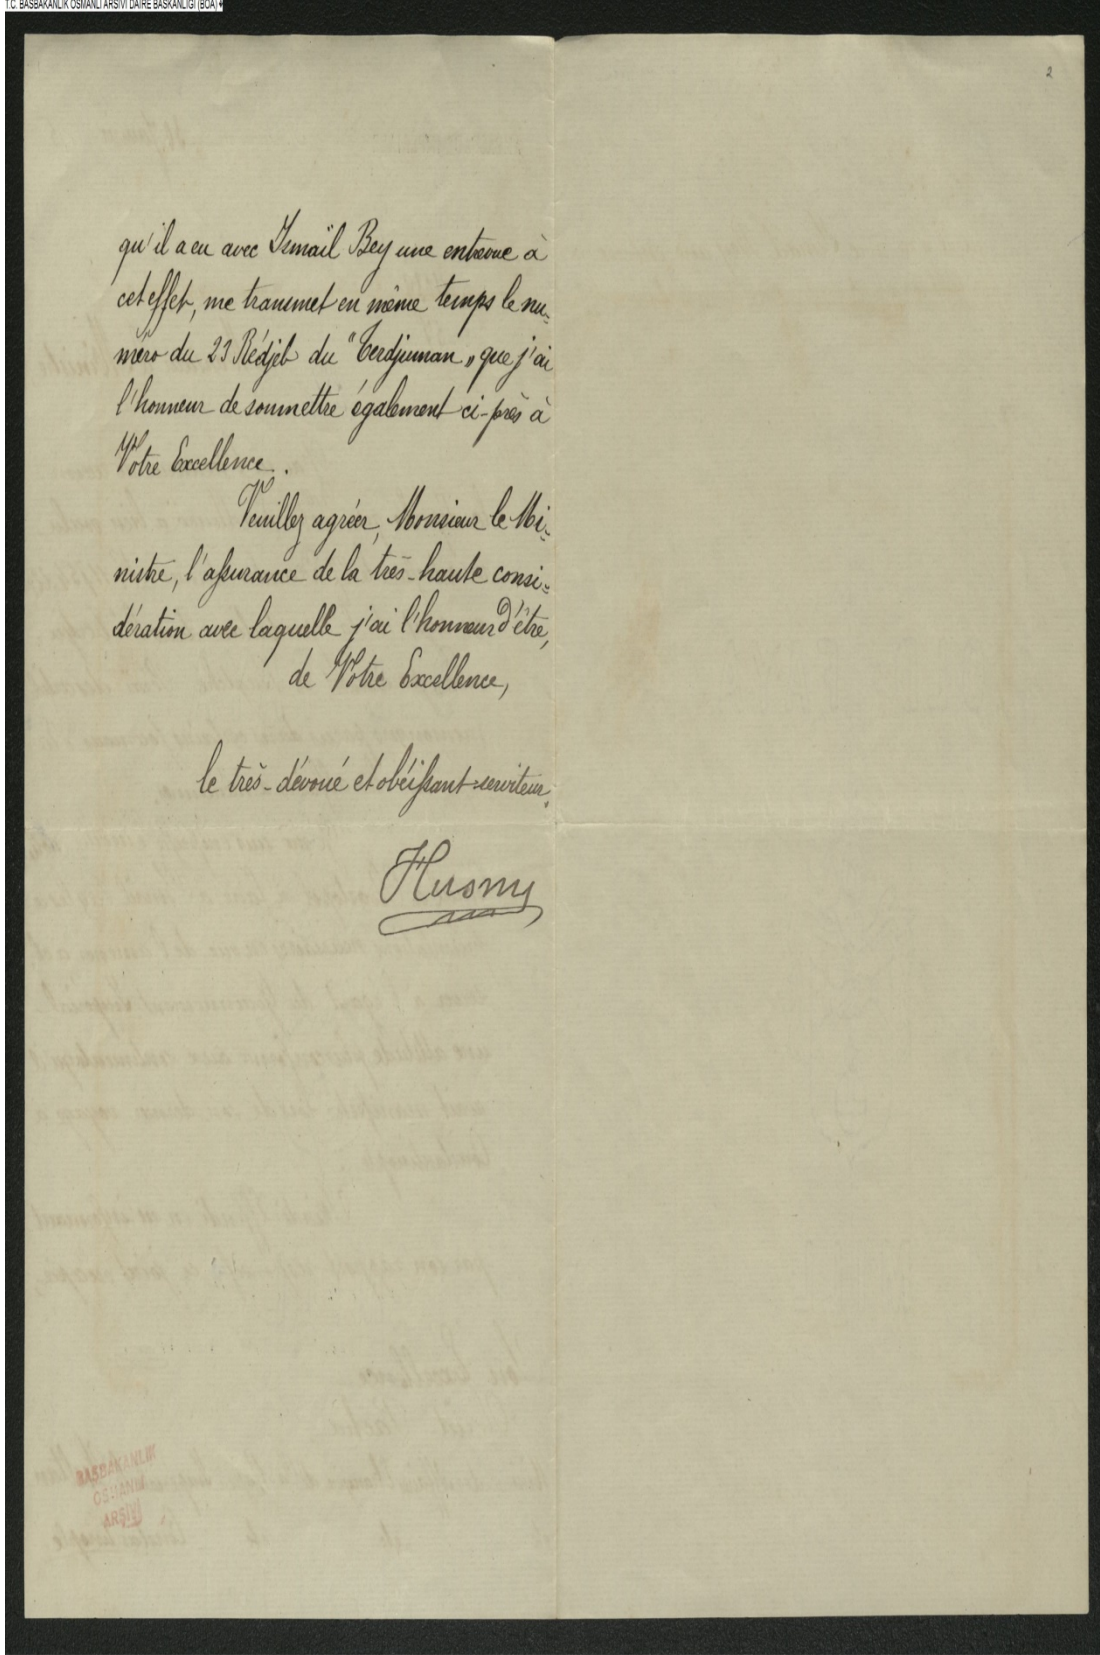 T.C. BAŞBAKANLIK OSMANLI ARŞİVİ DAİRE BAŞKANLIĞI (BOA)
2
qu'il a eu avec Ismaïl Bey une entrevue à
cet effet, me transmet en même temps le nu-
méro du 23 Rédjeb du "Terdjiuman" que j'ai
l'honneur de soumettre également ci-près à
Votre Excellence.
Veuillez agréer, Monsieur le Mi-
nistre, l'assurance de la très-haute consi-
dération avec laquelle j'ai l'honneur d'être,
de Votre Excellence,
le très-dévoué et obéissant serviteur.
Husny
BAŞBAKANLIK
OSMANLI
ARŞİVİ